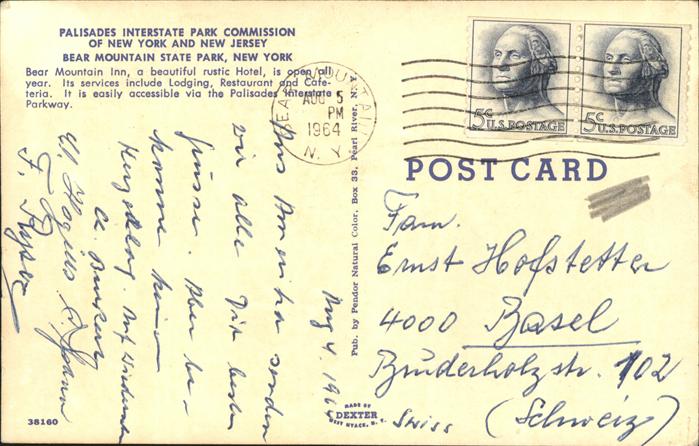 PALISADES INTERSTATE PARK COMMISSION
OF NEW YORK AND NEW JERSEY
BEAR MOUNTAIN STATE PARK, NEW YORK
Bear Mountain Inn, a beautiful rustic Hotel, is open all
year. Its services include Lodging, Restaurant and Cafe-
teria. It is easily accessible via the Palisades Interstate
Parkway.
BEAR MOUNTAIN
AUG 5
PM
1964
N. Y.
5c U.S. POSTAGE
5c U.S. POSTAGE
POST CARD
Aug 4. 196
Aus Amerika senden
wir alle die besten
Grüsse. Aber be-
komme keine
Auf Wiederseh
Pub. by Pendor Natural Color, Box 33, Pearl River, N. Y.
Fam.
Ernst Hofstetter
4000 Basel
Bruderholzstr. 102
Swiss (Schweiz)
38160
MADE BY
DEXTER
WEST NYACK, N. Y.